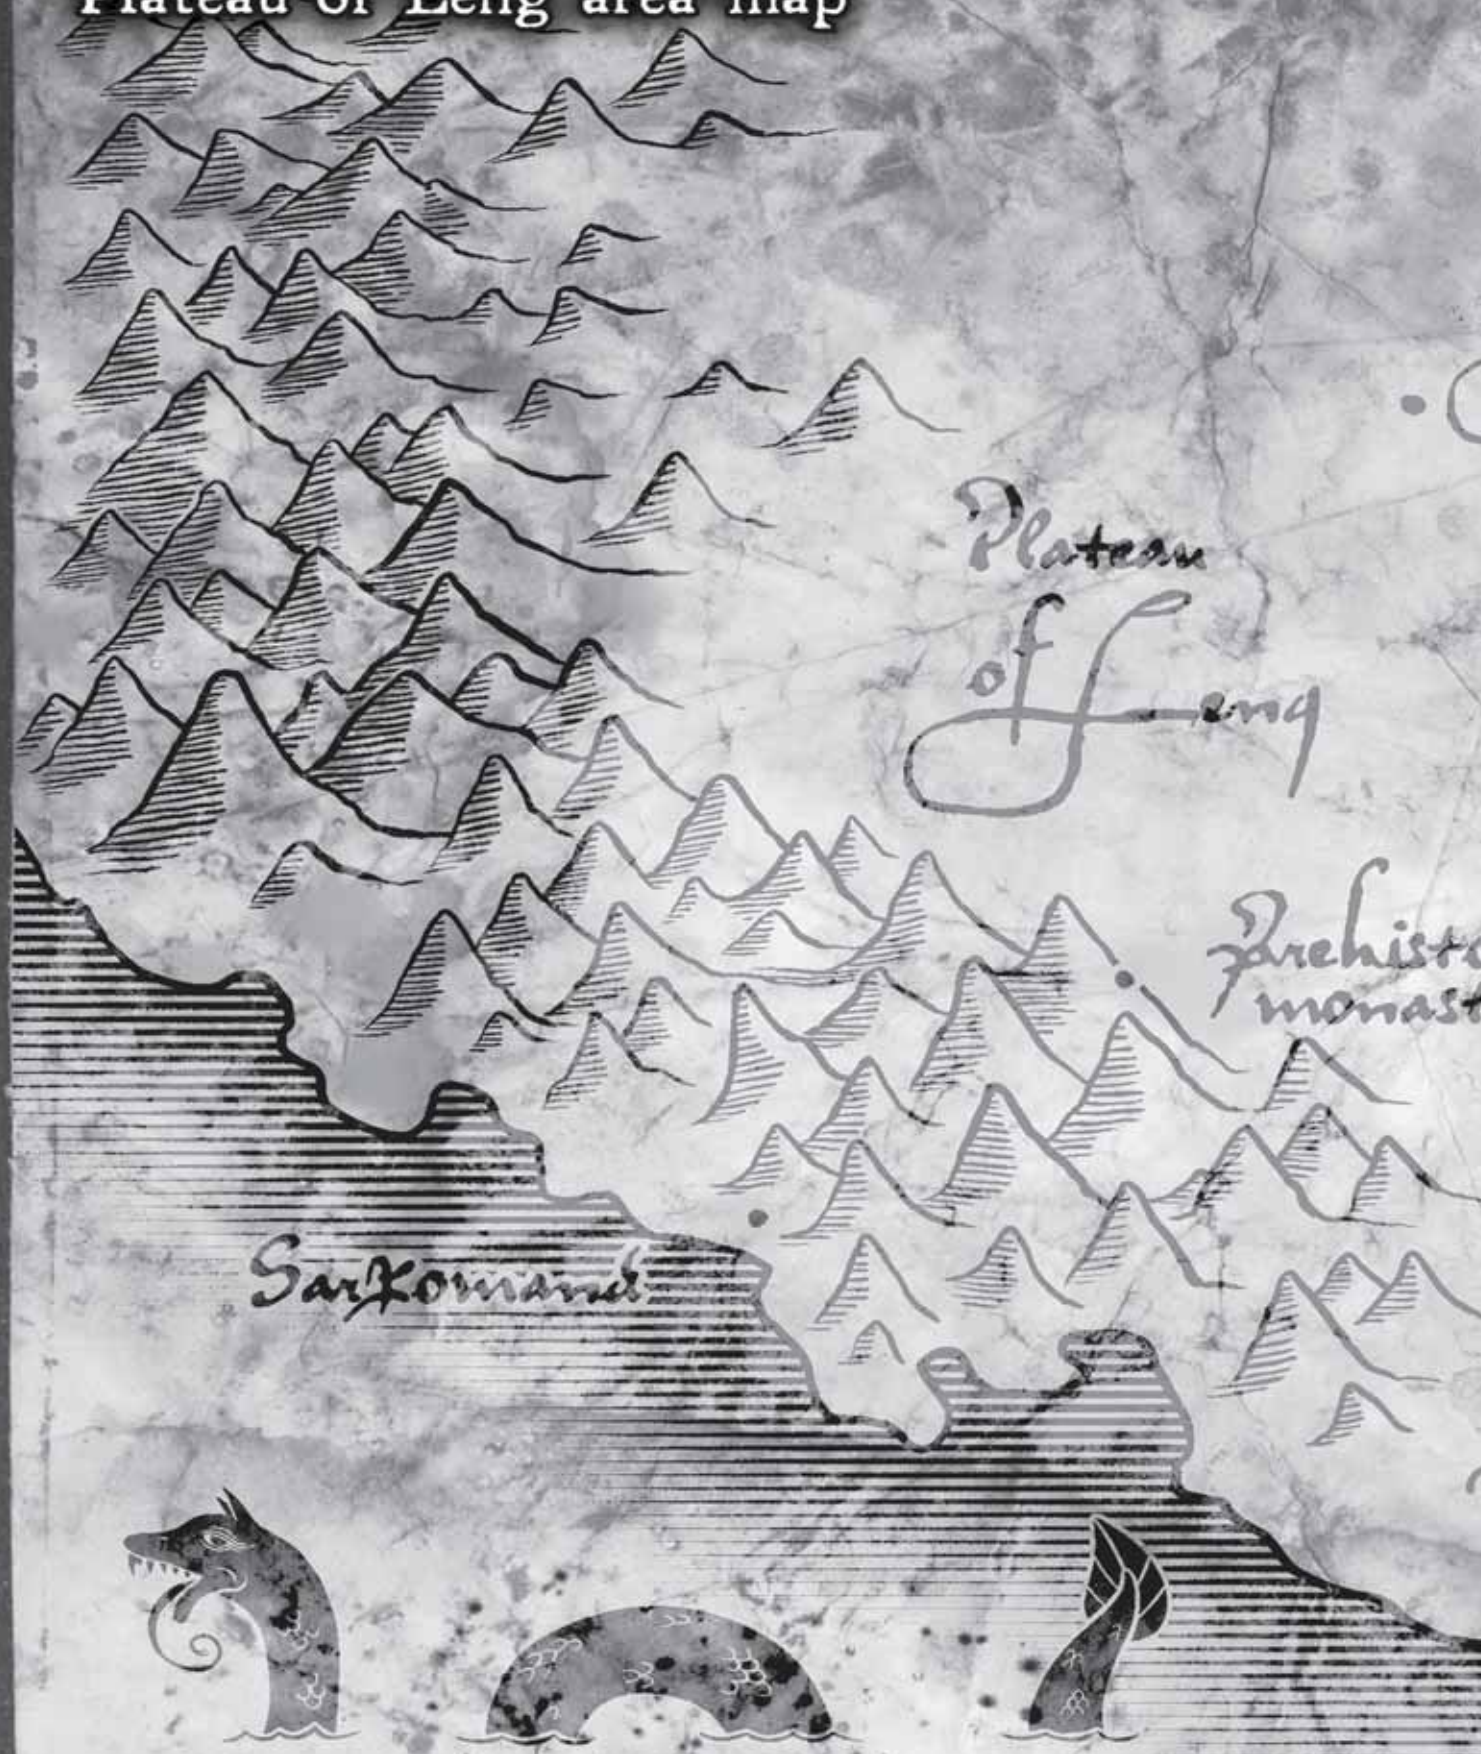 Plateau of Leng area map
Plateau
of Leng
Prehisto
monast
Sarkomand